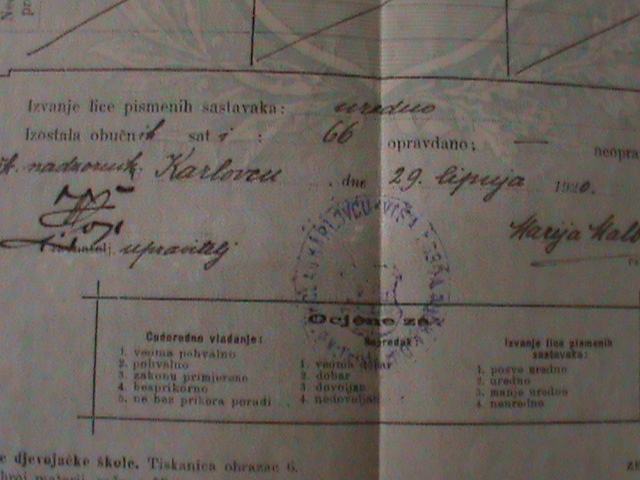 Izvanje lice pismenih sastavaka: uredno
Izostala obučnih sati: 66 opravdano; — neopra
nadzornik. Karlovcu, dne 29. lipnja 1920.
upravitelj
Marija
Ocjene za
Ćudoredno vladanje:
1. veoma pohvalno
2. pohvalno
3. zakonu primjereno
4. besprikorno
5. ne bez prikora poradi . . .
Napredak
1. veoma dobar
2. dobar
3. dovoljan
4. nedovoljan
Izvanje lice pismenih
sastavaka:
1. posve uredno
2. uredno
3. manje uredno
4. neuredno
e djevojačke škole. Tiskanica obrazac 6.